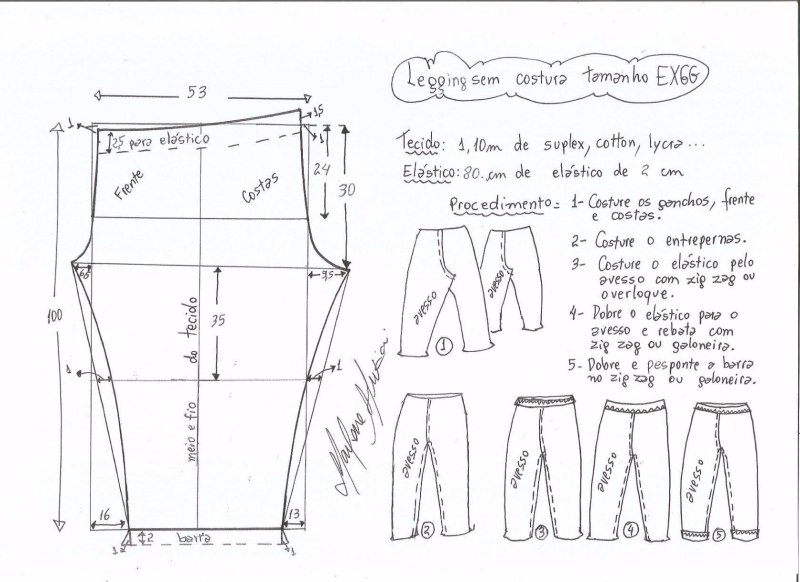 Legging sem costura tamanho EXGG
Tecido: 1,10m de suplex, cotton, lycra...
Elástico: 80.cm de elástico de 2 cm
Procedimento= 1- Costure os ganchos, frente
e costas.
2- Costure o entrepernas.
3- Costure o elástico pelo
avesso com zig zag ou
overloque.
4- Dobre o elástico para o
avesso e rebata com
zig zag ou galoneira.
5- Dobre e pesponte a barra
no zig zag ou galoneira.
53
1
1,5
2,5 para elástico
1
Frente
Costas
24
30
6,5
9,5
100
35
meio e fio do tecido
1
1
16
13
2
barra
1
1
avesso
avesso
1
avesso
2
avesso
3
avesso
4
avesso
5